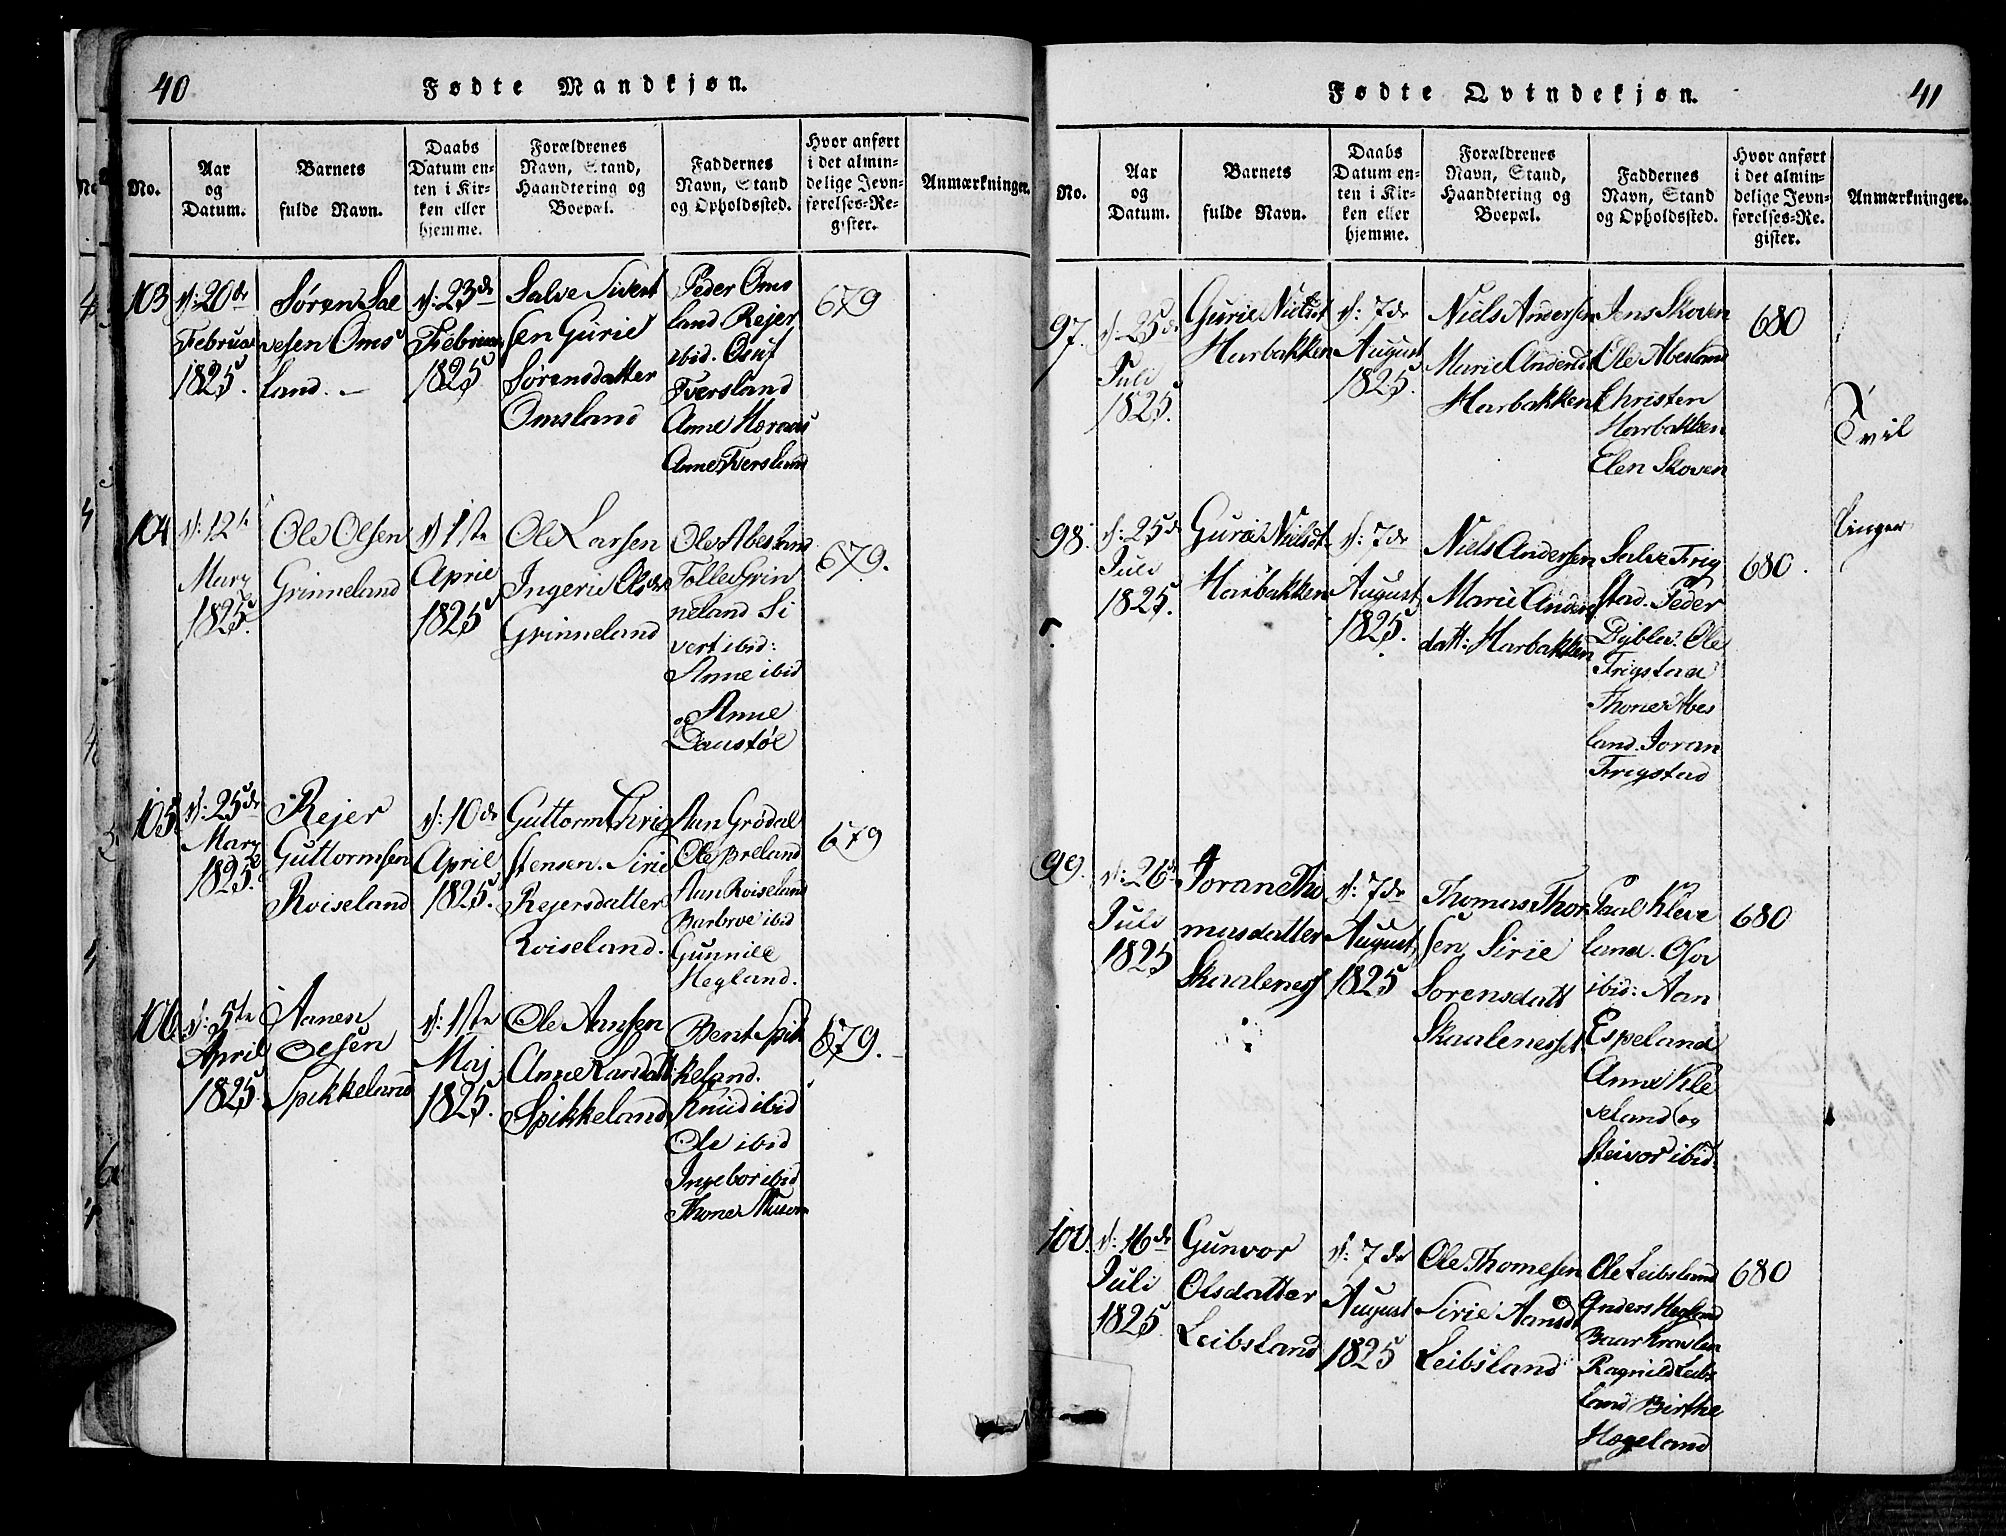 40
Fødte Mandkjøn.
No.
Aar
og
Datum.
Barnets
fulde Navn.
Daabs
Datum en-
ten i Kir-
ken eller
hjemme.
Forældrenes
Navn, Stand,
Haandtering og
Boepæl.
Faddernes
Navn, Stand
og Opholdssted.
Hvor anført
i det almin-
delige Jevn-
førelses-Re-
gister.
Anmærkninger.
103
d: 20de
Februar
1825.
Søren Sal
vesen Oms
land. –
d: 23de
Februar
1825
Salve Sivert
sen Gurie
Sørensdatter
Omsland
Peder Oms
land Rejer
ibid. Osuf
Tversland
Anne
Anne Tversland
679
104
d: 12te
Marz
1825.
Ole Olsen
Grinneland
d 1ste
April
1825
Ole Larsen
Ingerie Olsdr
Grinneland
Ole Abesland
Tolle Grin
neland Si
vert ibid:
Anne ibid
og Anne
Daustøl
679.
105
d: 25de
Marz
1825.
Rejer
Guttormsen
Roiseland
d: 10de
April
1825.
Guttorm Chri
stensen. Sirie
Rejersdatter
Roiseland.
Aan Grødal
Ole Breland
Aan Roiseland
Barbroe ibid
Gunnile
Hegland.
679
106
d: 5te
April
1825.
Aanen
Olsen
Spikkeland
d: 1ste
Maj
1825.
Ole Aansen
Anne Larsdatt
Spikkeland
Bent Spik
keland.
Knud ibid
Ole ibid
Ingebor ibid
Thone
679.
41
Fødte Qvindekjøn.
No.
Aar
og
Datum.
Barnets
fulde Navn.
Daabs
Datum en-
ten i Kir-
ken eller
hjemme.
Forældrenes
Navn, Stand,
Haandtering og
Boepæl.
Faddernes
Navn, Stand
og Opholdssted.
Hvor anført
i det almin-
delige Jevn-
førelses-Re-
gister.
Anmærkninger.
97.
d: 25de
Juli
1825.
Gurie Nielsdt
Harbakken
d: 7de
August
1825.
Niels Andersen
Marie Andersdt
Harbakken
Jens Skoven
Ole Abesland
Christen
Harbakken
Elen Skoven
680
Tvil
98.
d: 25de
Juli
1825.
Gurie Nielsdt.
Harbakken
d: 7de
August
1825.
Niels Andersen
Marie Anders
datt: Harbakken
Salve Frig
stad. Peder
Dybler. Ole
Frigstad
Thone Abes
land. Joran
Frigstad
680.
linger
99.
d: 26de
Juli
1825
Jorane Tho
masdatter
Skaalenes
d: 7de
August
1825
Thomas Thor
sen Sirie
Sorensdatt
Skaaleneset
Paal Kleve
land. Osov
ibid: Aan
Espeland
Anne Kle
veland og
Steivor ibid:
680
100.
d: 16de
Juli
1825
Gunvor
Olsdatter
Leibsland
d: 7de
August
1825
Ole Thomesen
Sirie Aansdt
Leibsland
Ole Leibsland
Anders Hegland
Baar
Ragnild Leibs
land Birthe
Hægeland
680